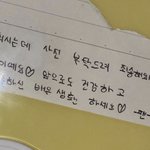 하시는데 사진 부탁드려 죄송해요
이에요♡ 앞으로도 건강하고
하신 배우 생활 하세요♡ -팬-